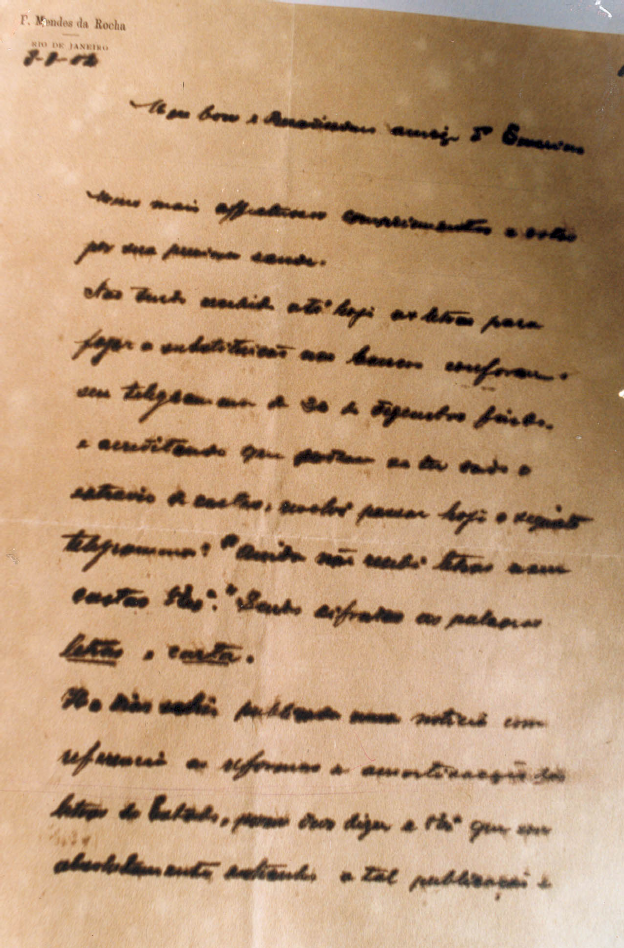 P. Mendes da Rocha
RIO DE JANEIRO
Meu bom e amigo Dr
Meus mais affectuosos comprimentos e votos
por sua preciosa saude.
Não tendo recebido até hoje as letras para
fazer a substituição nos bancos conforme
seu telegramma de 30 de Dezembro findo,
e acreditando que podem ter sido o
extravio de cartas, resolvi passar hoje o seguinte
telegramma: "Ainda não recebi letras nem
cartas Vexa." Sendo cifradas as palavras
letras e carta.
Ha dias sahiu publicada uma noticia com
referencia as reformas e amortisação das
letras do Estado, porem devo dizer a que sou
absolutamente extranho a tal publicação e